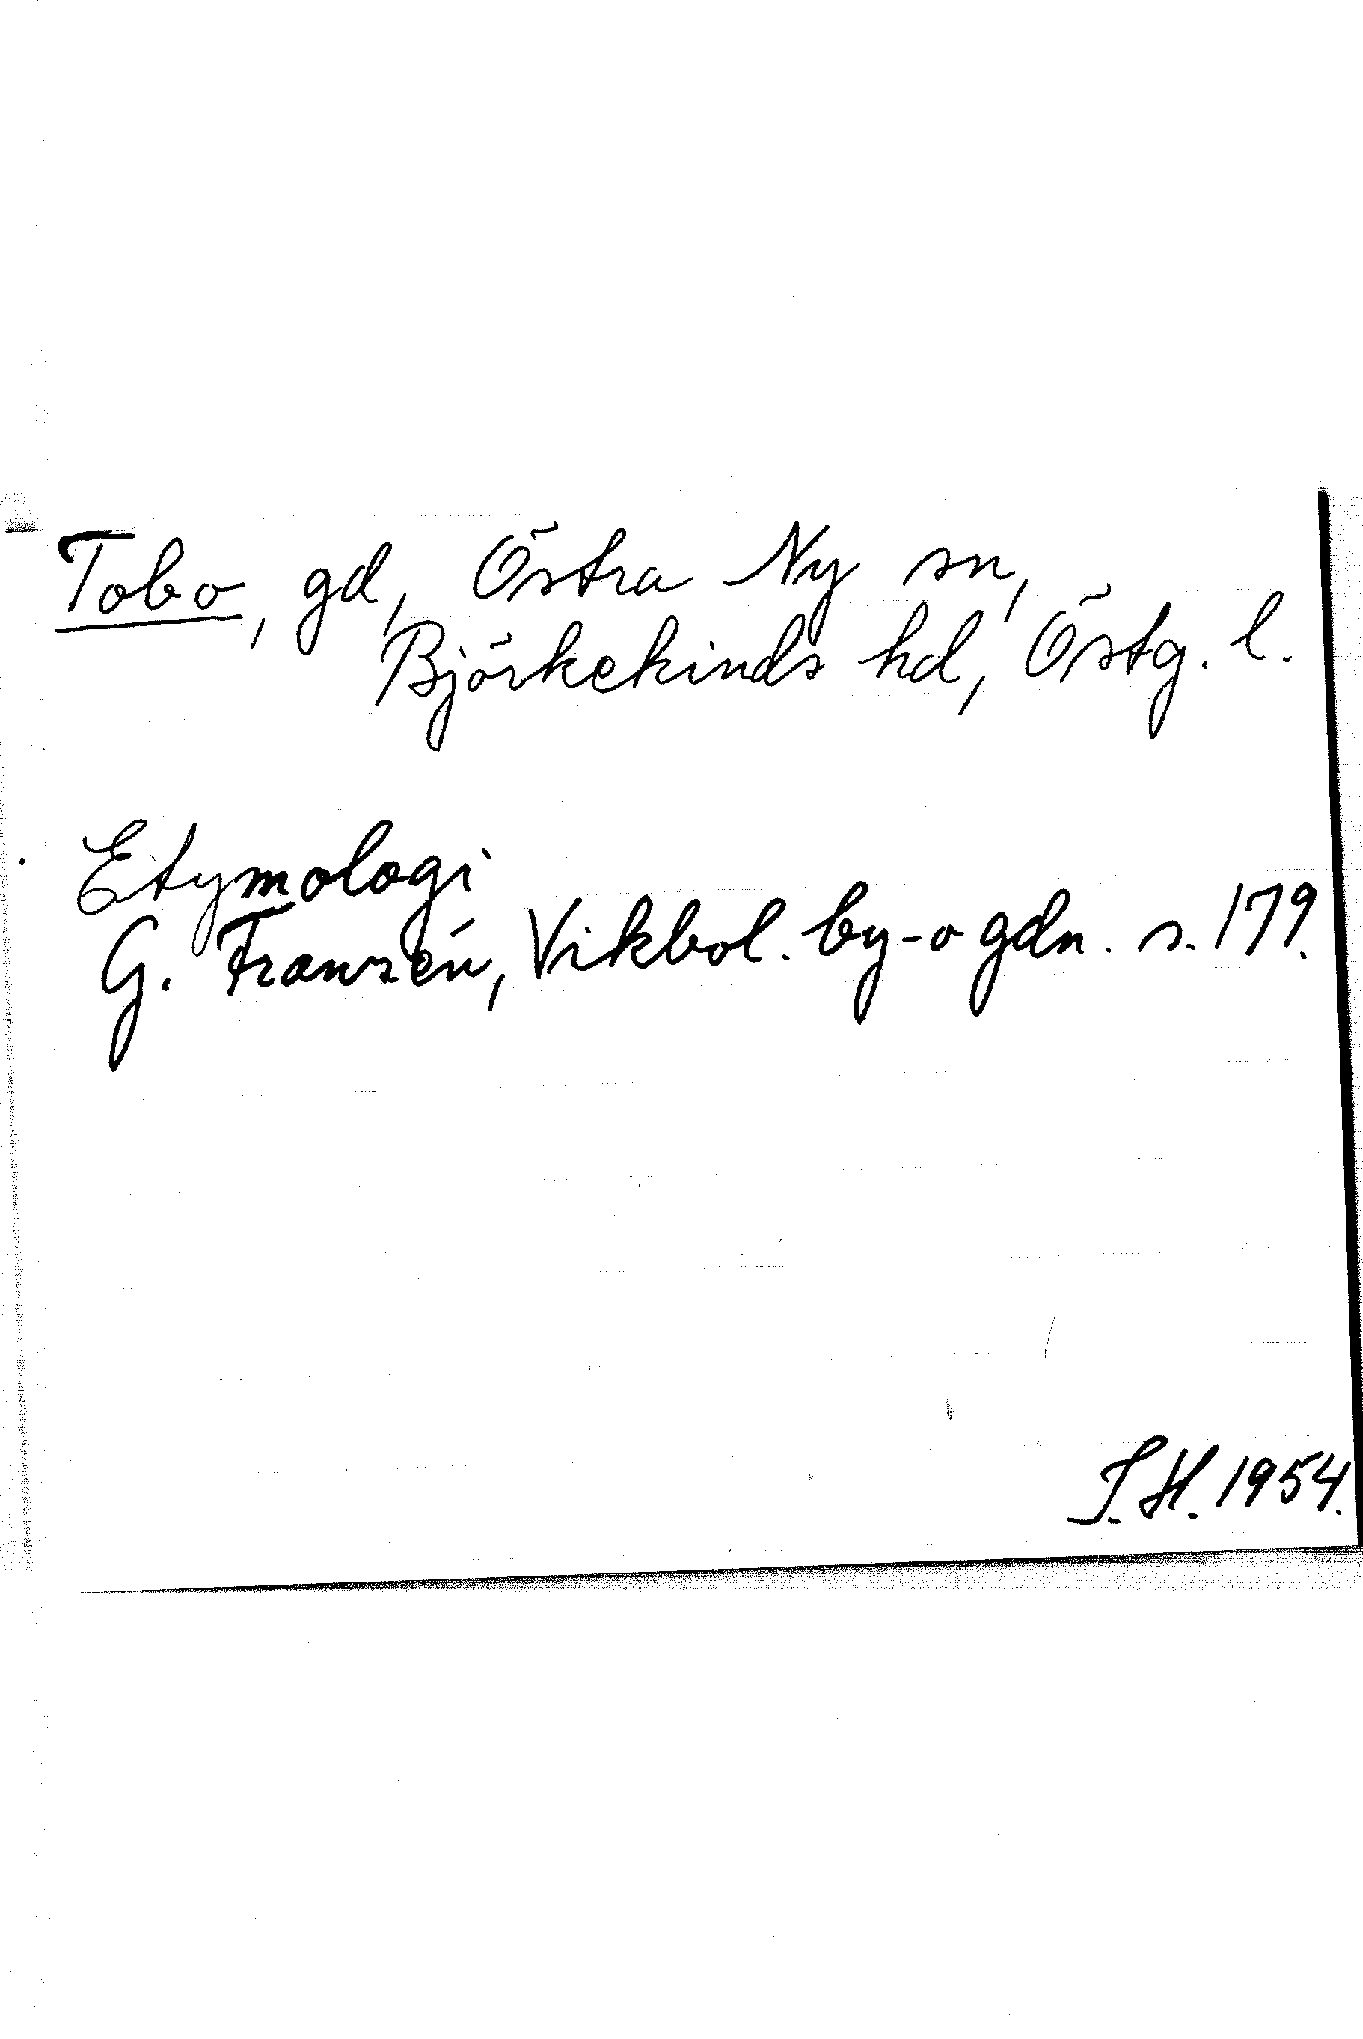 Tobo, gd, Östra Ny sn,
Björkekinds hd, Östg. l.
Etymologi
G. Franzén, Vikbol. by- o gdn. s. 179.
I. H. 1954.